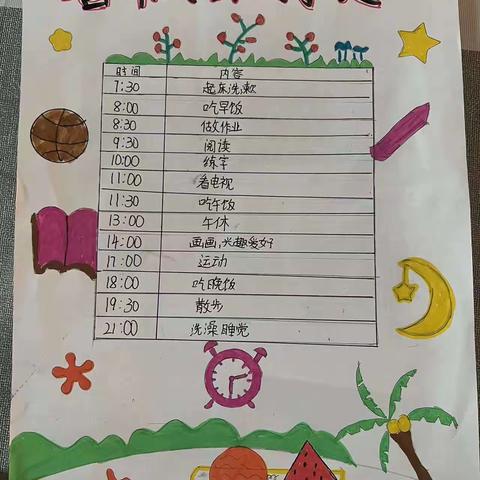 时间 内容
7:30 起床洗漱
8:00 吃早饭
8:30 做作业
9:30 阅读
10:00 练字
11:00 看电视
11:30 吃午饭
13:00 午休
14:00 画画,兴趣爱好
17:00 运动
18:00 吃晚饭
19:30 散步
21:00 洗澡睡觉